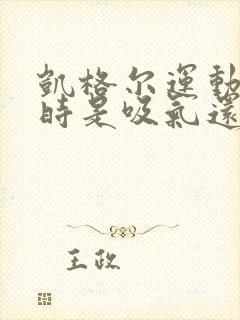 凱格尔運動
時是吸氣還
王政